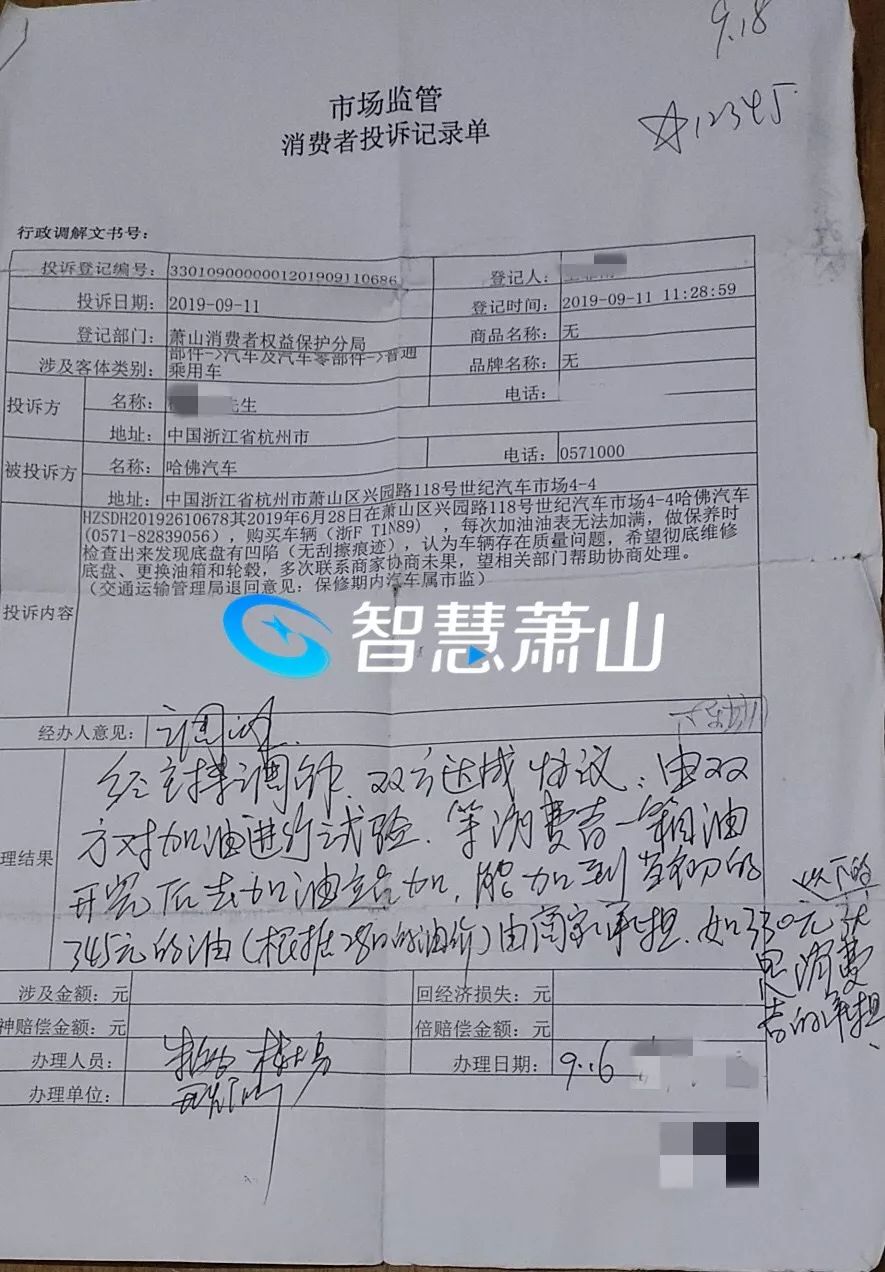 9.18
☆12345
市场监管
消费者投诉记录单
行政调解文书号：
投诉登记编号： 3301090000001201909110686 登记人：
投诉日期： 2019-09-11 登记时间： 2019-09-11 11:28:59
登记部门： 萧山消费者权益保护分局 商品名称： 无
涉及客体类别： 部件->汽车及汽车零部件->普通
乘用车 品牌名称： 无
投诉方 名称： 先生 电话：
地址： 中国浙江省杭州市
被投诉方 名称： 哈佛汽车 电话： 0571000
地址： 中国浙江省杭州市萧山区兴园路118号世纪汽车市场4-4
投诉内容
HZSDH20192610678其2019年6月28日在萧山区兴园路118号世纪汽车市场4-4哈佛汽车
(0571-82839056)，购买车辆（浙F T1N89），每次加油油表无法加满，做保养时
检查出来发现底盘有凹陷（无刮擦痕迹），认为车辆存在质量问题，希望彻底维修
底盘、更换油箱和轮毂，多次联系商家协商未果，望相关部门帮助协商处理。
（交通运输管理局退回意见：保修期内汽车属市监）
智慧萧山
经办人意见：
理结果
经主持调解，双方达成协议：由双
方对加油进行试验，等消费者一箱油
开完后去加油站加，能加到当初的
345元的油（根据28日的油价）由商家承担，如330元
以下的
消费
者的承担、
涉及金额：元 回经济损失：元
神赔偿金额：元 倍赔偿金额：元
办理人员： 办理日期： 9.16
办理单位：